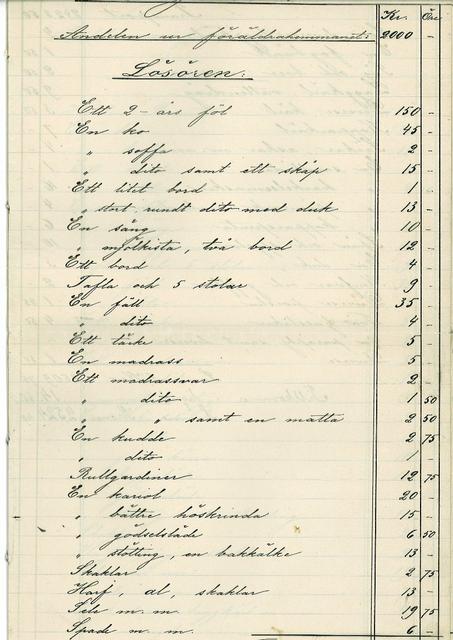 Kr. Öre
Andelen ur föräldrahemmanet: 2000 –
Lösören:
Ett 2-års föl 150 –
En ko 45 –
" soffa 2 –
" dito samt ett skåp 15 –
Ett litet bord 1 –
" stort rundt dito med duk 13 –
En säng 10 –
" mjölkista, två bord 12 –
Ett bord 4 –
Tafla och 5 stolar 9 –
En fäll 35 –
" dito 4 –
Ett täcke 5 –
En madrass 5 –
Ett madrassvar 2 –
" dito 1 50
" " samt en matta 2 50
En kudde 2 75
" dito 1 –
Rullgardiner 12 75
En kariol 20 –
" bättre höskrinda 15 –
" gödselsläde 6 50
" stötting, en bakkälke 13 –
Skaklar 2 75
Harf, al, skaklar 13 –
Sele m. m. 19 75
Spade m. m. 6 –